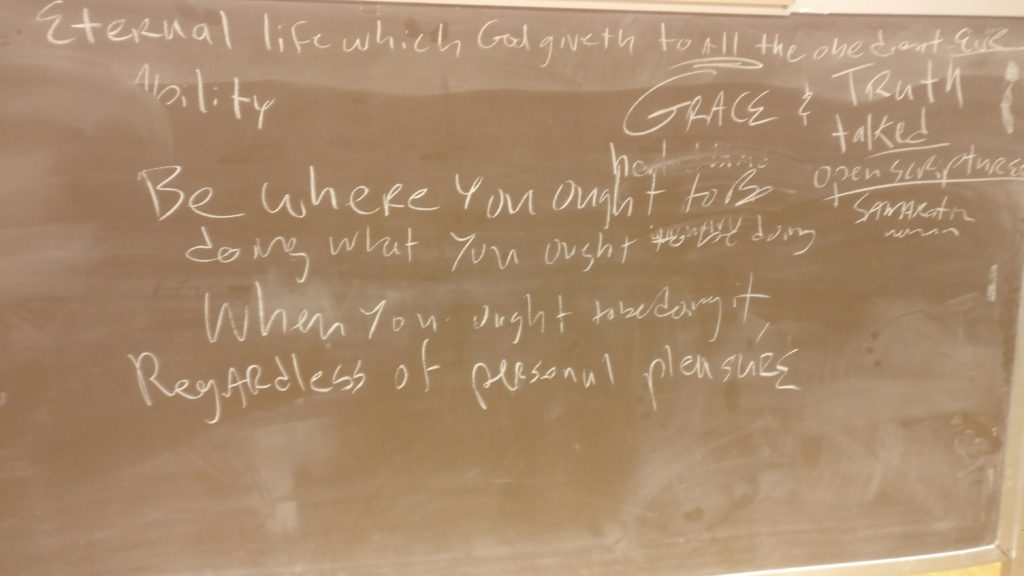 Eternal life which God giveth to All the obedient
Ability
GRACE & TRUTH
talked
open scriptures
SAMARITN
woman
Be where you ought to Be
doing what you ought to be doing
When you ought to be doing it,
Regardless of personal pleasure